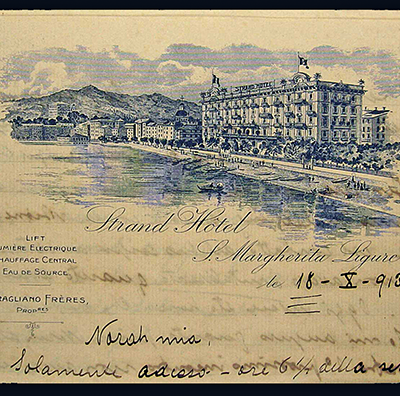 STRAND HOTEL
Strand Hôtel
S. Margherita Ligure
LIFT
LUMIÈRE ELECTRIQUE
CHAUFFAGE CENTRAL
EAU DE SOURCE
RAGLIANO FRÈRES,
PROPRES
le 18-X-913
Norah mia,
Solamente adesso - ore 6¼ della se